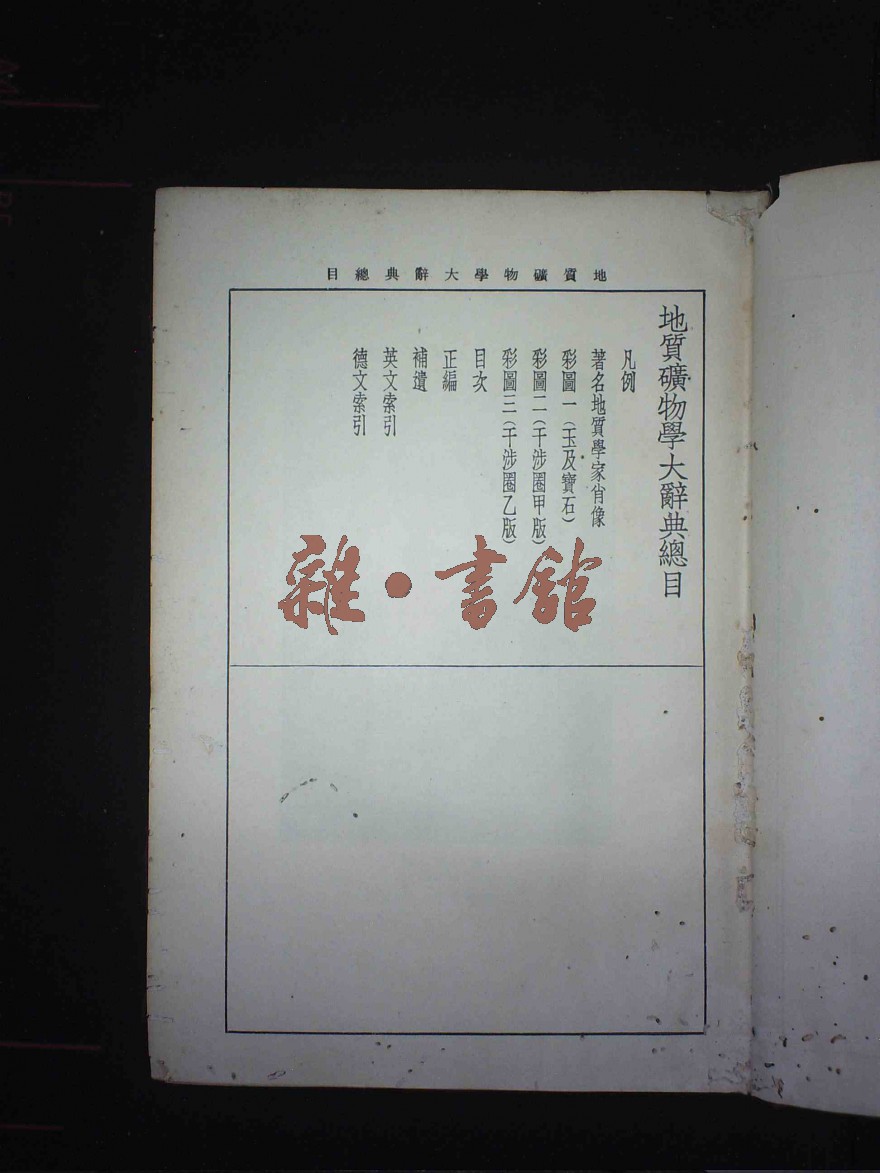 地質礦物學大辭典總目
地質礦物學大辭典總目
凡例
著名地質學家肖像
彩圖一（玉及寶石）
彩圖二（干涉圈甲版）
彩圖三（干涉圈乙版）
目次
正編
補遺
英文索引
德文索引
雜·書館